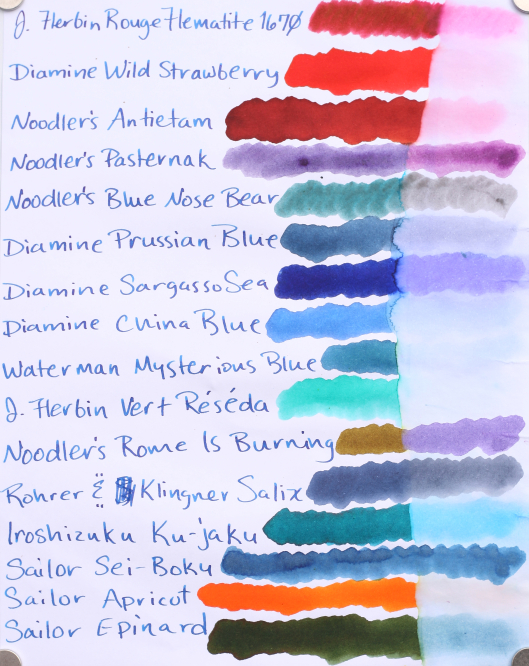 J. Herbin Rouge Hematite 1670
Diamine Wild Strawberry
Noodler's Antietam
Noodler's Pasternak
Noodler's Blue Nose Bear
Diamine Prussian Blue
Diamine Sargasso Sea
Diamine China Blue
Waterman Mysterious Blue
J. Herbin Vert Réséda
Noodler's Rome Is Burning
Rohrer & Klingner Salix
Iroshizuku Ku-jaku
Sailor Sei-Boku
Sailor Apricot
Sailor Epinard